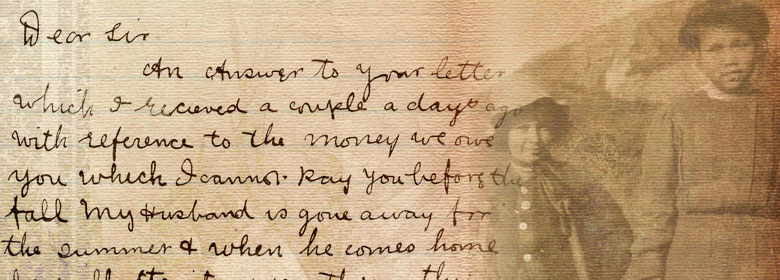 Dear Sir
An Answer to your letter
which I recieved a couple a days ago
with reference to the money we owe
you which I cannot pay you before the
fall My Husband is gone away for
the summer & when he comes home